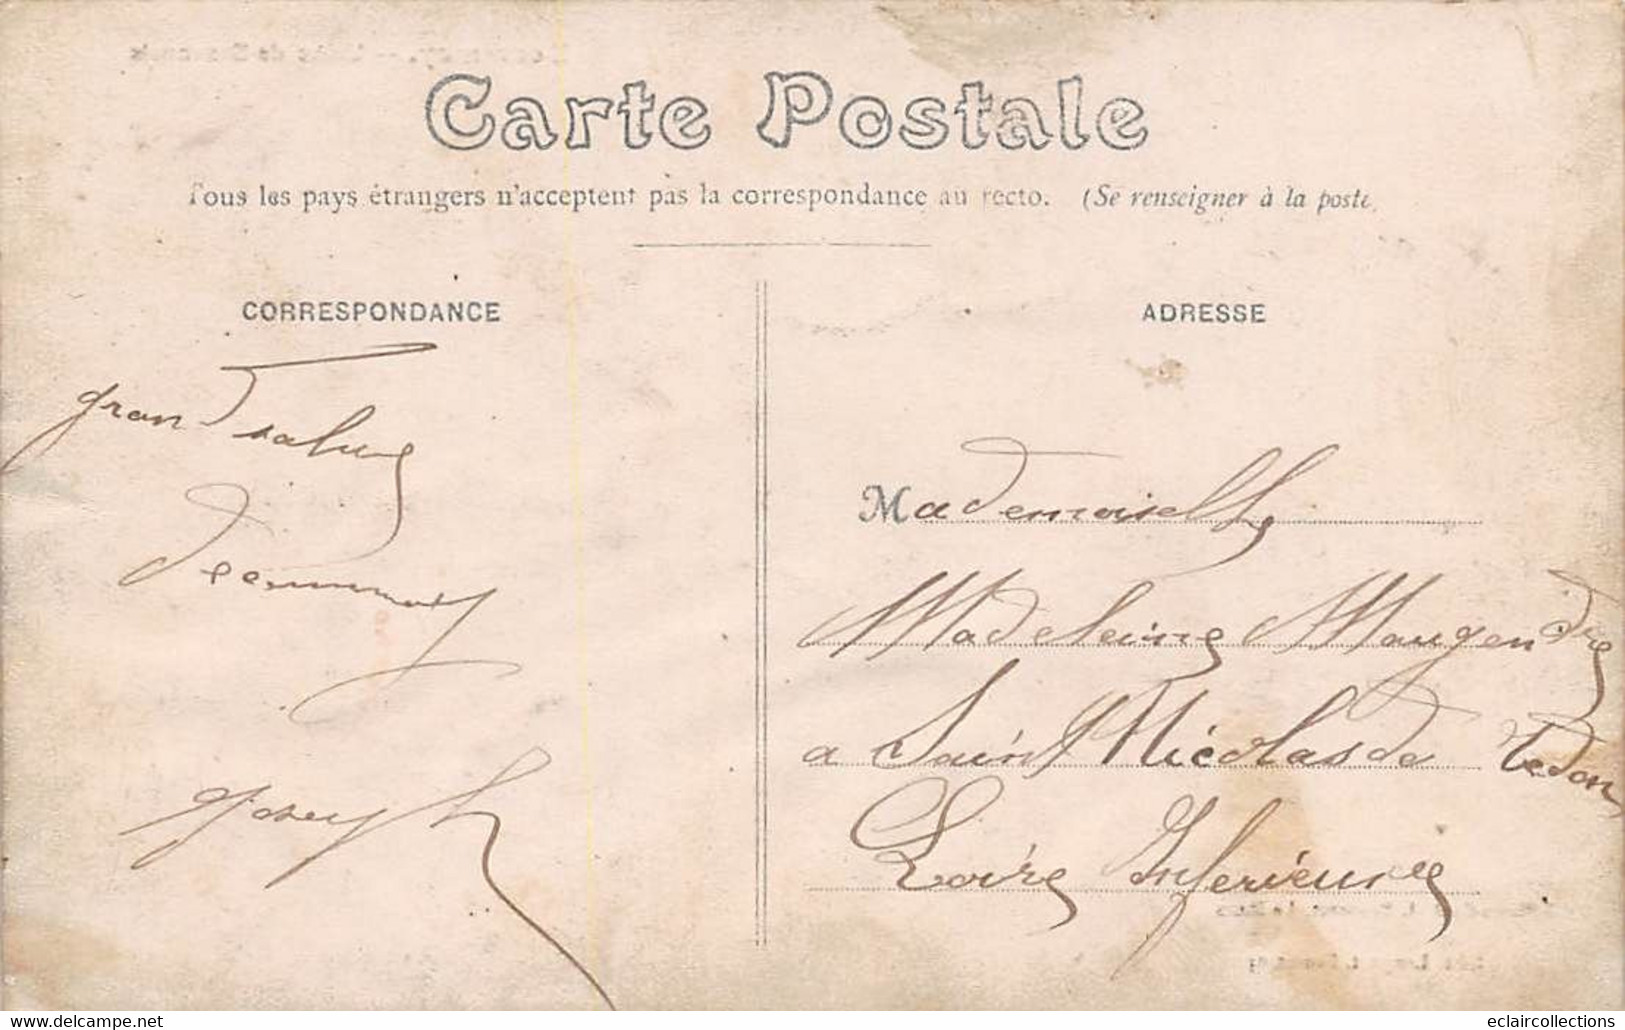 Carte Postale
Tous les pays étrangers n'acceptent pas la correspondance au recto. (Se renseigner à la poste
CORRESPONDANCE
ADRESSE
gran Salue
Joseph
Mademoiselle
Madeleine Maugendre
a Saint Nicolas de Redon
Loire Inferieure
www.delcampe.net
eclaircollections